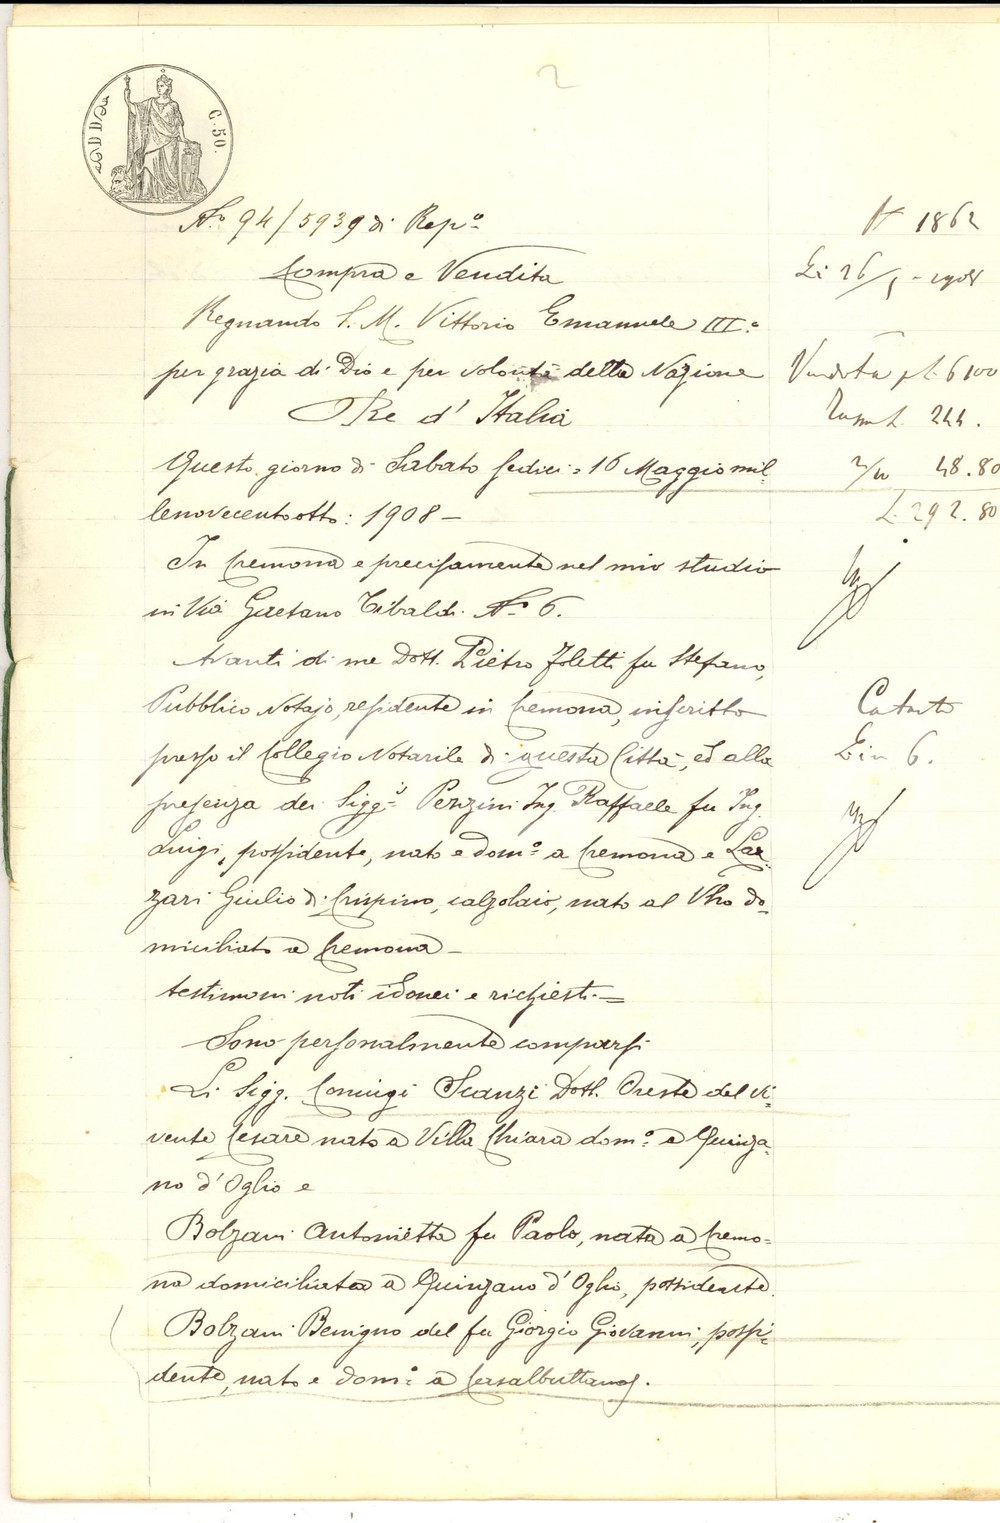 2
C. 50.
N.o 94/5939 di Rep.o
Compra e Vendita
Regnando S. M. Vittorio Emanuele III.o
per grazia di Dio e per volontà della Nazione
Re d' Italia
Questo giorno di Sabato sedici = 16 Maggio mil=
lenovecentootto: 1908 -
In Cremona e precisamente nel mio studio
in Via Gaetano Tibaldi N.o 6.
Avanti di me Dott. Pietro Foletti fu Stefano,
Pubblico Notajo, residente in Cremona, inscritto
presso il Collegio Notarile di questa Città, ed alla
presenza dei Sigg.i Penzini Ing. Raffaele fu Ing.
Luigi, possidente, nato e dom.o a Cremona e Laz=
zari Giulio di Crispino, calzolaio, nato al Vho do=
miciliato a Cremona -
testimoni noti idonei e richiesti =
Sono personalmente comparsi
Li Sigg. Coniugi Scanzi Dott. Oreste del vi=
vente Cesare nato a Villa Chiara dom.o a Quinza=
no d' Oglio e
Bolzani Antonietta fu Paolo, nata a Cremo=
na domiciliata a Quinzano d' Oglio, possidente.
Bolzani Benigno del fu Giorgio Giovanni, possi=
dente, nato e dom.o a Casalbuttano.
N 1862
Li 26/5 - 1908
Vendita p L. 6100
Tassa L. 244.
2/10 48.80
L. 292.80
Catasto
Lire 6.